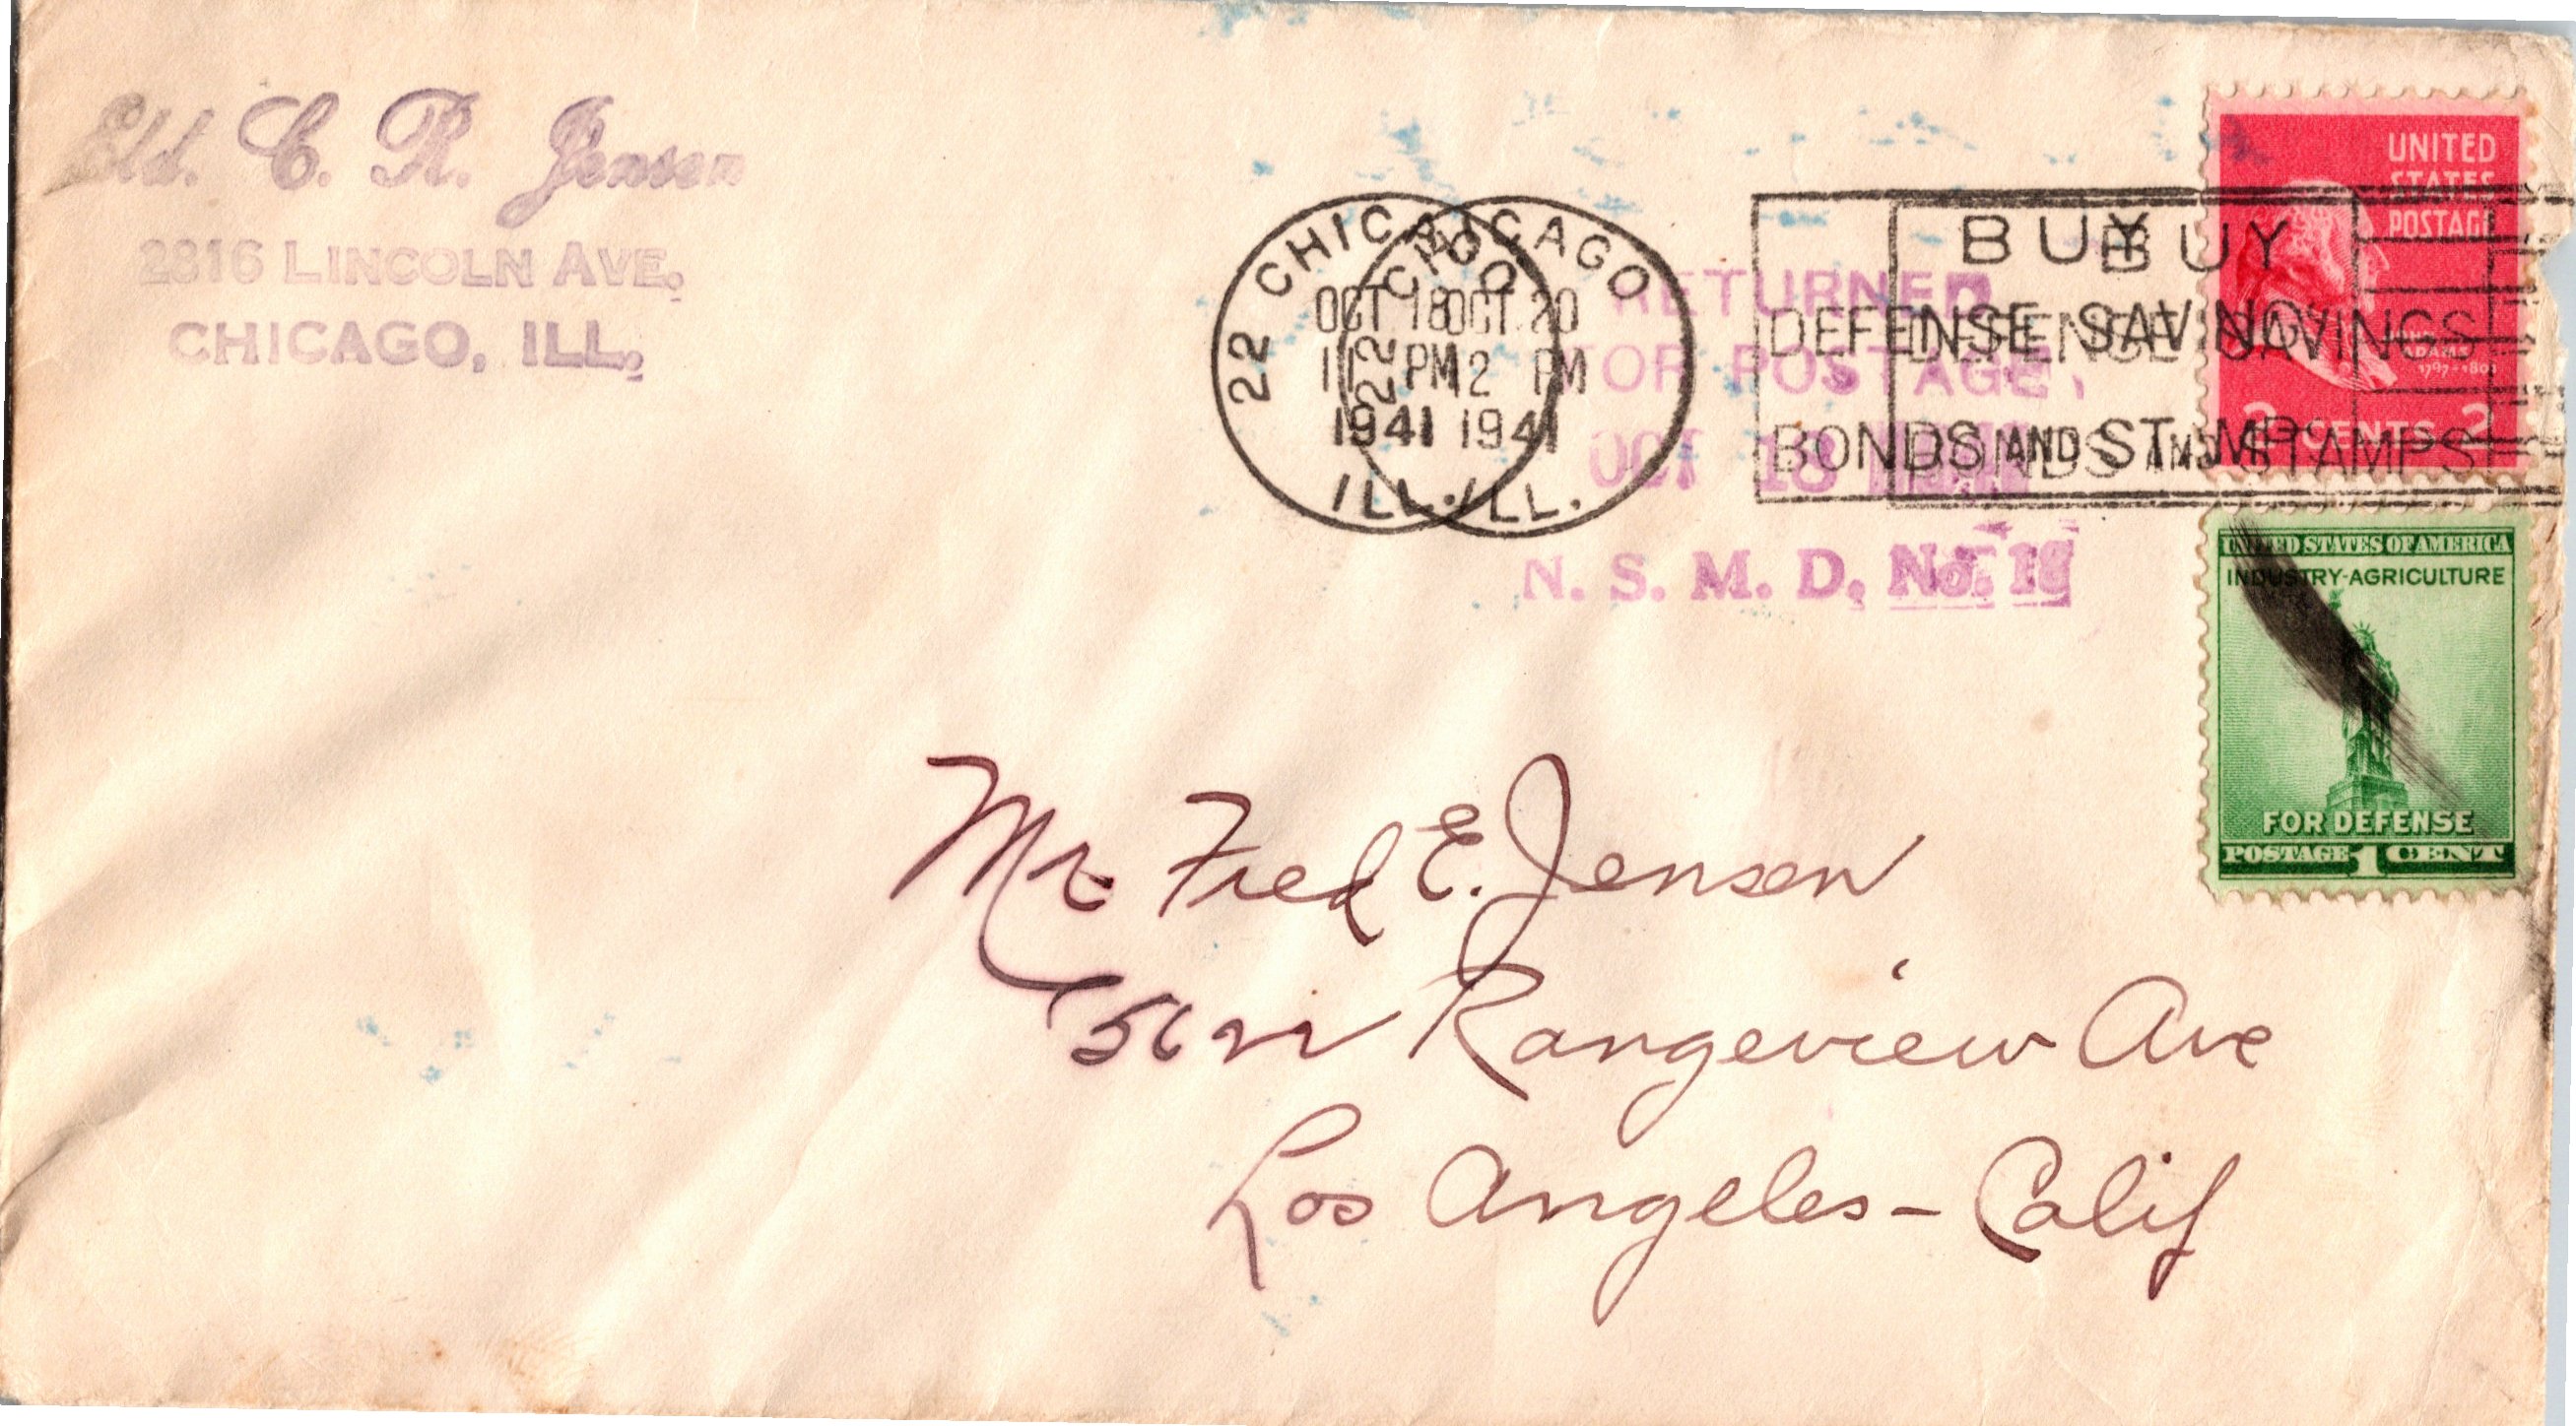 Eld. C. R. Jensen
2816 LINCOLN AVE.
CHICAGO, ILL.
22 CHICAGO ILL.
OCT 18
11 PM
1941
22 CHICAGO ILL.
OCT 20
2 PM
1941
BUY
DEFENSE SAVINGS
BONDS AND STAMPS
BUY
DEFENSE SAVINGS
BONDS AND STAMPS
RETURNED
FOR POSTAGE
OCT 18
N. S. M. D. No.
UNITED
STATES
POSTAGE
JOHN
ADAMS
1797-1801
2 CENTS 2
UNITED STATES OF AMERICA
INDUSTRY-AGRICULTURE
FOR DEFENSE
POSTAGE 1 CENT
Mr Fred E. Jensen
Rangeview Ave
Los Angeles - Calif